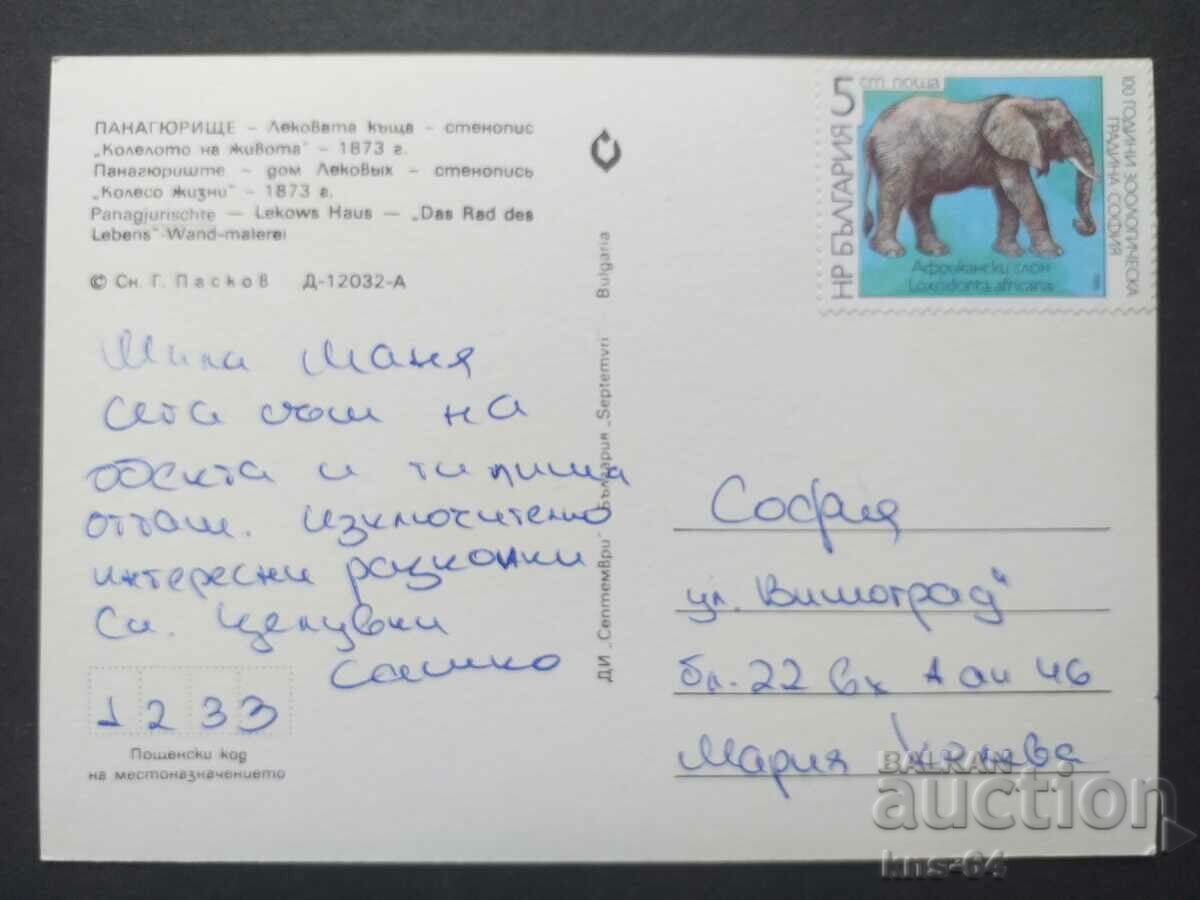 ПАНАГЮРИЩЕ – Лековата къща – стенопис
„Колелото на живота" – 1873 г.
Панагюриште – дом Лековых – стенопись
„Колесо жизни" – 1873 г.
Panagjurischte – Lekows Haus – „Das Rad des
Lebens" Wand-malerei
© Сн. Г. Пасков Д-12032-А
Мила Маня
сега съм на
обекта и ти пиша
оттам. Изключително
интересни разкопки
См. Целувки
Сашко
1233
Пощенски код
на местоназначението
ДИ „Септември" България „Septemvri" Bulgaria
НР БЪЛГАРИЯ 5 ст поща
Африкански слон
Loxodonta africana
100 ГОДИНИ ЗООЛОГИЧЕСКА
ГРАДИНА СОФИЯ
София
ул. Виноград"
бл. 22 вх А ап 46
Мария
BALKAN
auction
kns-64